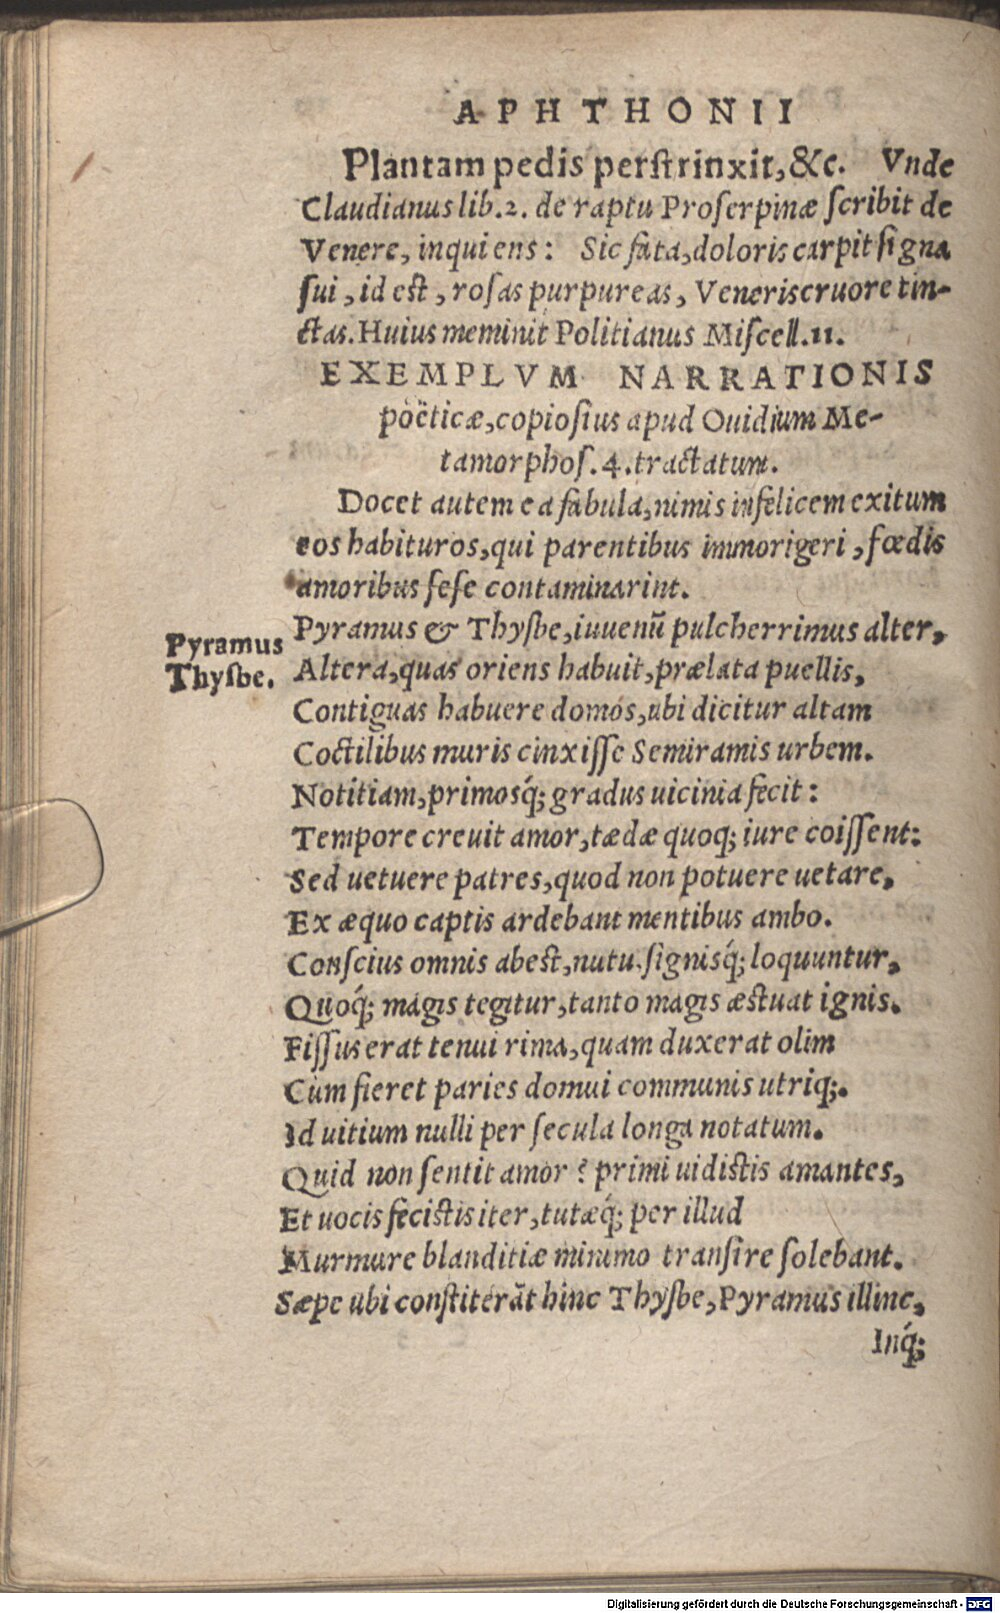 APHTHONII
Plantam pedis perstrinxit, &c. Vnde
Claudianus lib. 2. de raptu Proserpinæ scribit de
Venere, inquiens: Sic fata, doloris carpit signa
sui, id est, rosas purpureas, Veneris cruore tin-
ctas. Huius meminit Politianus Miscell. 11.
EXEMPLVM NARRATIONIS
poëticæ, copiosius apud Ouidium Me-
tamorphos. 4. tractatum.
Docet autem ea fabula, nimis infelicem exitum
eos habituros, qui parentibus immorigeri, fœdis
amoribus sese contaminarint.
Pyramus
Thysbe.
Pyramus & Thysbe, iuuenũ pulcherrimus alter,
Altera, quas oriens habuit, prælata puellis,
Contiguas habuere domos, ubi dicitur altam
Coctilibus muris cinxisse Semiramis urbem.
Notitiam, primosq́; gradus uicinia fecit:
Tempore creuit amor, tædæ quoq; iure coissent:
Sed uetuere patres, quod non potuere uetare,
Ex æquo captis ardebant mentibus ambo.
Conscius omnis abest, nutu. signisq́; loquuntur,
Quoq́; magis tegitur, tanto magis æstuat ignis.
Fissus erat tenui rima, quam duxerat olim
Cùm fieret paries domui communis utriq;.
Id uitium nulli per secula longa notatum.
Quid non sentit amor? primi uidistis amantes,
Et uocis fecistis iter, tutæq́; per illud
Murmure blanditiæ minimo transire solebant.
Sæpe ubi constiterãt hinc Thysbe, Pyramus illinc,
Inq́;
Digitalisierung gefördert durch die Deutsche Forschungsgemeinschaft - DFG